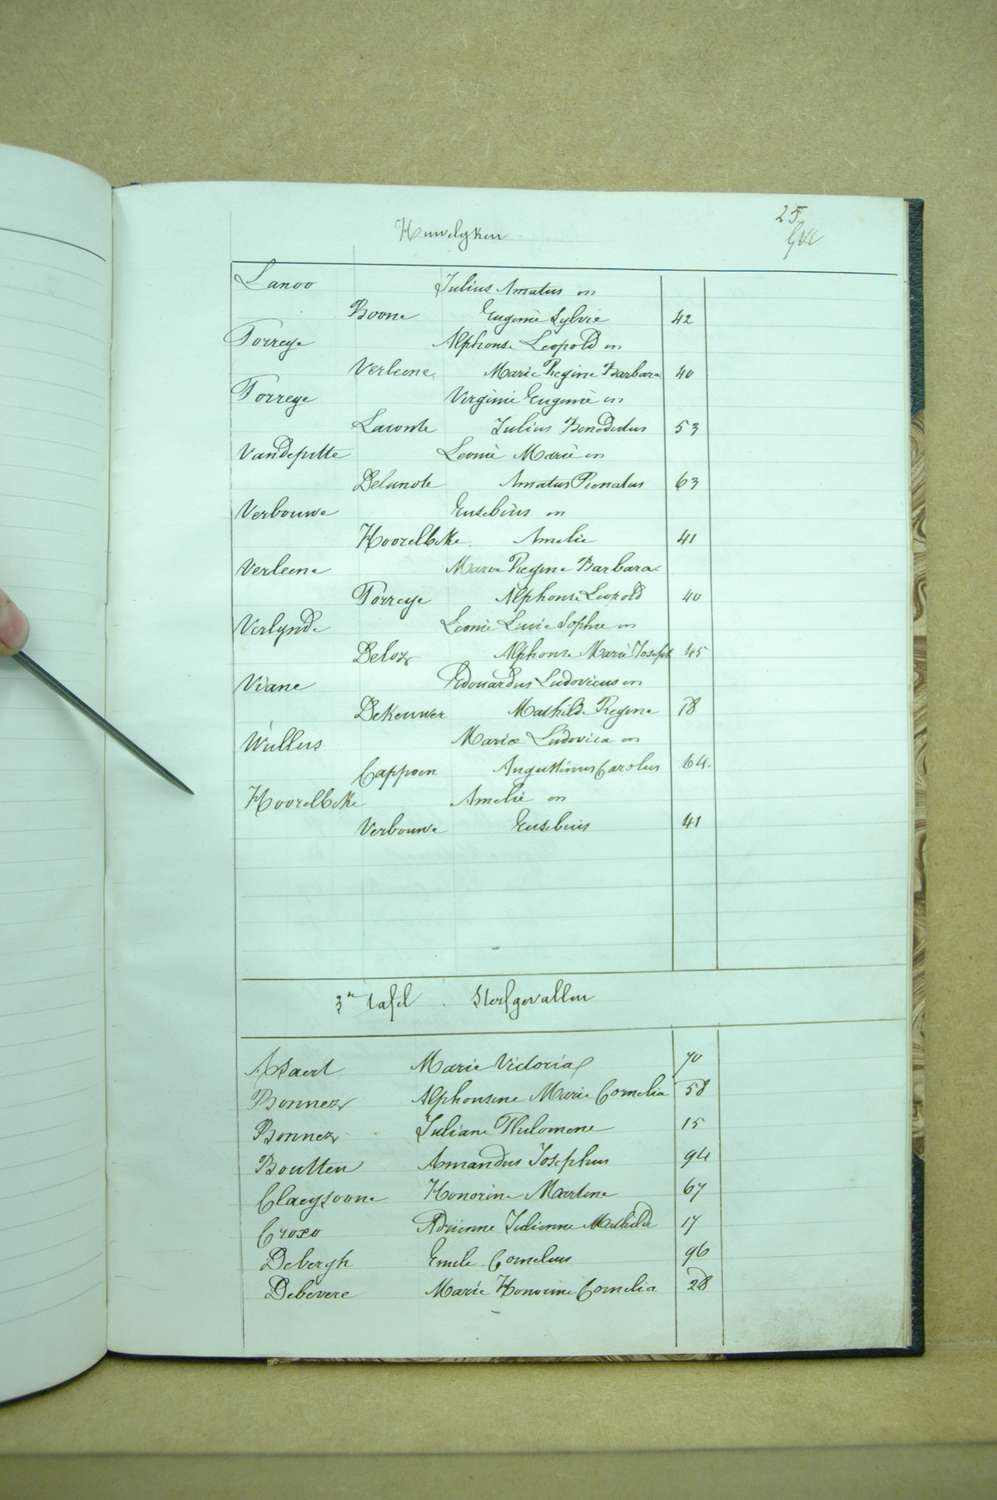 25
Huwelyken
Lanoo Julius Amatus en
Boone Eugenie Sylvie 42
Torreye Alphonse Leopold en
Verleene Marie Regine Barbara 40
Torreye Virginie Eugenie en
Laconte Julius Benedictus 53
Vandeputte Leonie Marie en
Delanote Amatus Renatus 63
Verbouwe Eusebius en
Hoorelbeke Amelie 41
Verleene Marie Regine Barbara
Torreye Alphonse Leopold 40
Verlynde Leonie Lucie Sophie en
Beloz Alphons Marie Joseph 45
Viane Edouardus Ludovicus en
DeKeuwer Mathilde Regine 78
Wullens Marie Ludovica en
Cappoen Augustinus Carolus 64.
Hoorelbeke Amelie en
Verbouwe Eusebius 41
3e tafel . Sterfgevallen
Assaert Marie Victoria 70
Bonnez Alphonsine Marie Cornelia 58
Bonnez Juliane Philomene 15
Boutten Amandus Josephus 94
Claeysoone Honorine Martine 67
Croxo Adrienne Julienne Mathilde 17
Debergh Emile Cornelius 96
Debevere Marie Honorine Cornelia 28